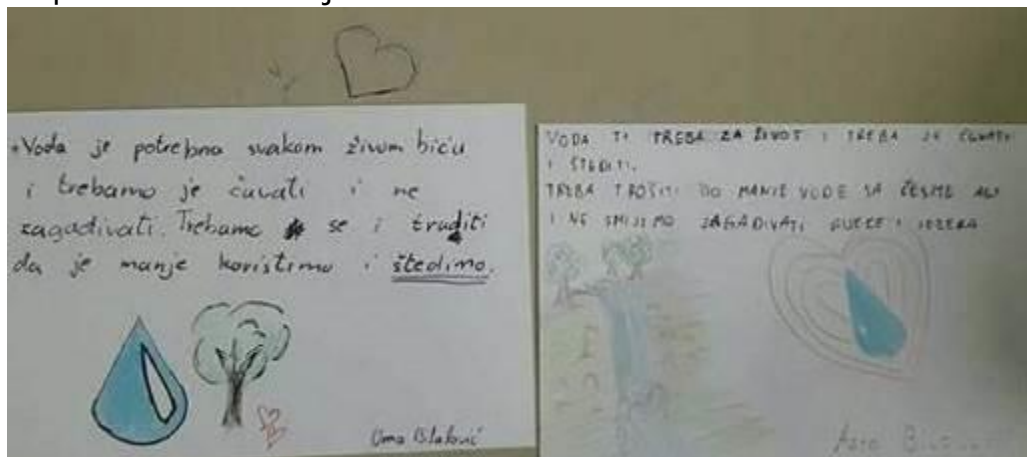 Voda je potrebna svakom živom biću
i trebamo je čuvati i ne
zagađivati. Trebamo se i truditi
da je manje koristimo i štedimo.
VODA TI TREBA ZA ŽIVOT I TREBA JE ČUVATI
I ŠTEDITI.
TREBA TROŠITI ŠO MANJE VODE SA ČESME ALI
I NE SMIJEMO ZAGAĐIVATI RIJEKE I JEZERA